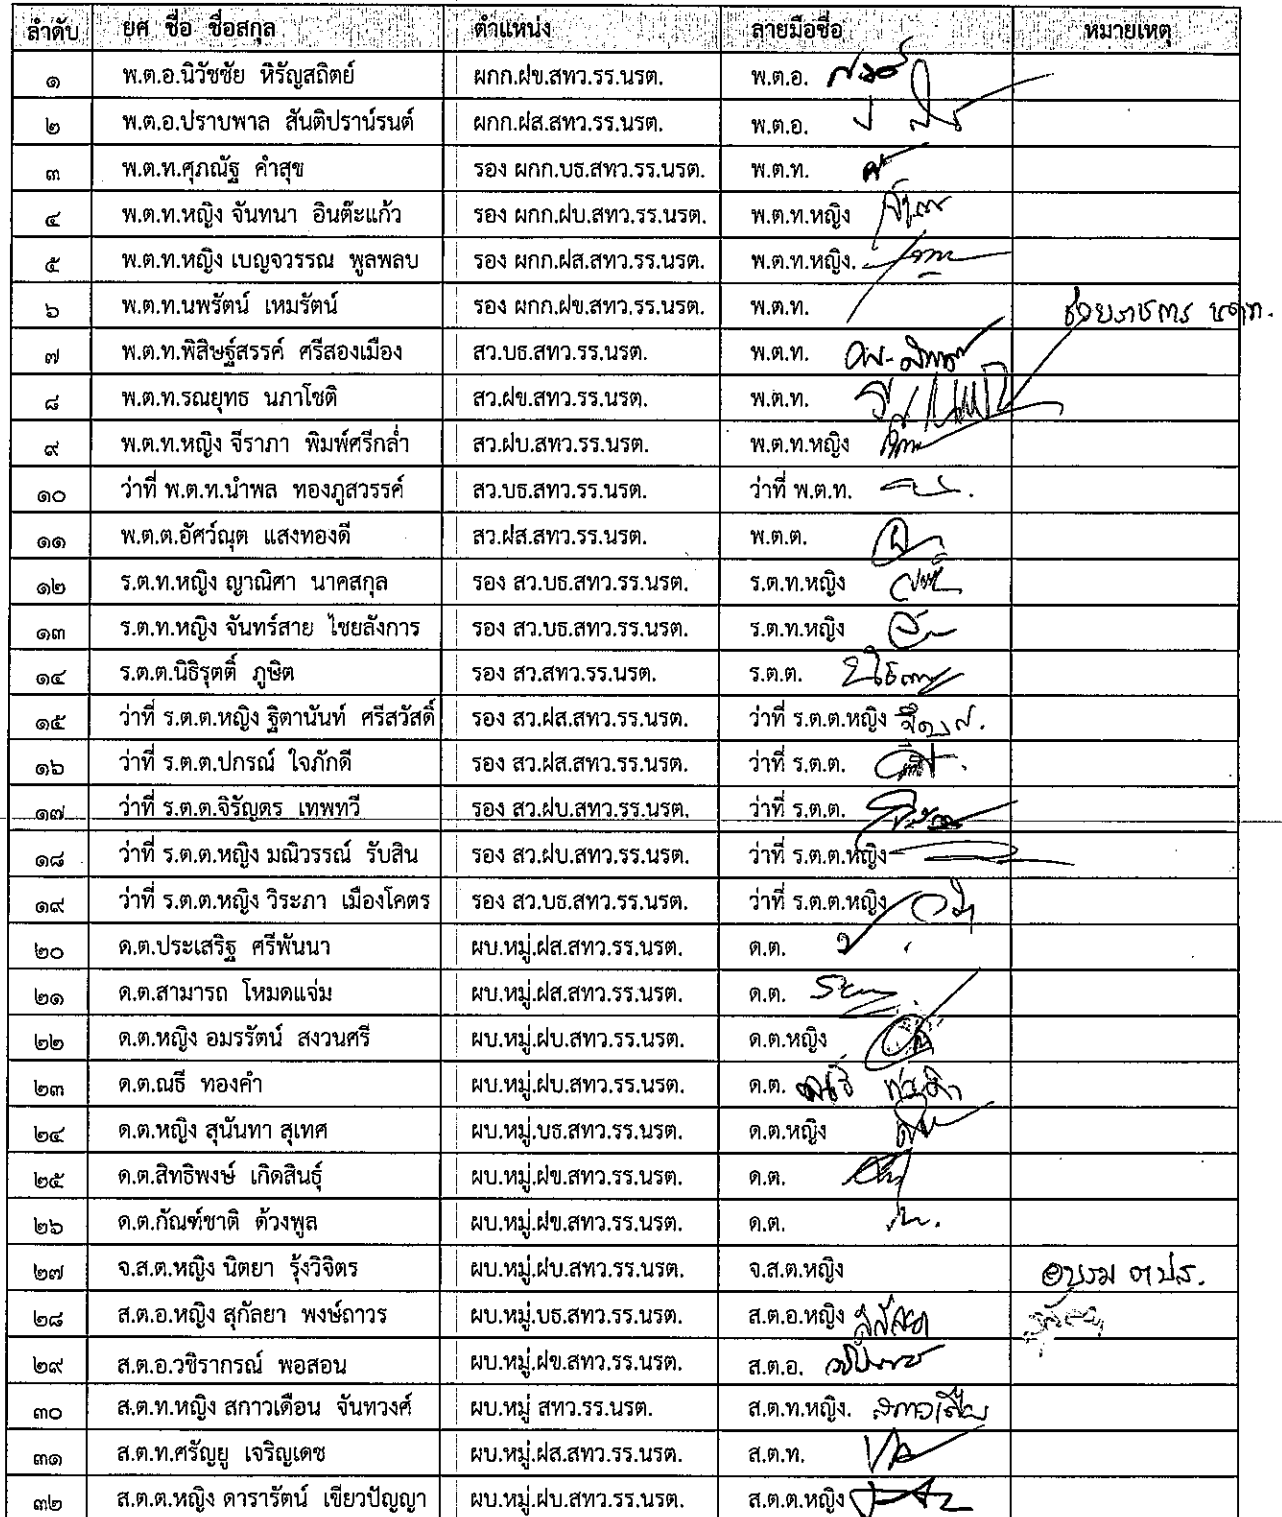 ลำดับ ยศ ชื่อ ชื่อสกุล ตำแหน่ง ลายมือชื่อ หมายเหตุ
๑ พ.ต.อ.นิวัชชัย หิรัญสถิตย์ ผกก.ฝข.สทว.รร.นรต. พ.ต.อ.
๒ พ.ต.อ.ปราบพาล สันติปราน์รนต์ ผกก.ฝส.สทว.รร.นรต. พ.ต.อ.
๓ พ.ต.ท.ศุภณัฐ คำสุข รอง ผกก.บธ.สทว.รร.นรต. พ.ต.ท.
๔ พ.ต.ท.หญิง จันทนา อินต๊ะแก้ว รอง ผกก.ฝบ.สทว.รร.นรต. พ.ต.ท.หญิง
๕ พ.ต.ท.หญิง เบญจวรรณ พูลพลบ รอง ผกก.ฝส.สทว.รร.นรต. พ.ต.ท.หญิง.
๖ พ.ต.ท.นพรัตน์ เหมรัตน์ รอง ผกก.ฝข.สทว.รร.นรต. พ.ต.ท. ช่วยราชการ
๗ พ.ต.ท.พิสิษฐ์สรรค์ ศรีสองเมือง สว.บธ.สทว.รร.นรต. พ.ต.ท.
๘ พ.ต.ท.รณยุทธ นภาโชติ สว.ฝข.สทว.รร.นรต. พ.ต.ท.
๙ พ.ต.ท.หญิง จีราภา พิมพ์ศรีกล่ำ สว.ฝบ.สทว.รร.นรต. พ.ต.ท.หญิง
๑๐ ว่าที่ พ.ต.ท.นำพล ทองภูสวรรค์ สว.บธ.สทว.รร.นรต. ว่าที่ พ.ต.ท.
๑๑ พ.ต.ต.อัศว์ณุต แสงทองดี สว.ฝส.สทว.รร.นรต. พ.ต.ต.
๑๒ ร.ต.ท.หญิง ญาณิศา นาคสกุล รอง สว.บธ.สทว.รร.นรต. ร.ต.ท.หญิง
๑๓ ร.ต.ท.หญิง จันทร์สาย ไชยลังการ รอง สว.บธ.สทว.รร.นรต. ร.ต.ท.หญิง
๑๔ ร.ต.ต.นิธิรุตติ์ ภูษิต รอง สว.สทว.รร.นรต. ร.ต.ต.
๑๕ ว่าที่ ร.ต.ต.หญิง ฐิตานันท์ ศรีสวัสดิ์ รอง สว.ฝส.สทว.รร.นรต. ว่าที่ ร.ต.ต.หญิง
๑๖ ว่าที่ ร.ต.ต.ปกรณ์ ใจภักดี รอง สว.ฝส.สทว.รร.นรต. ว่าที่ ร.ต.ต.
๑๗ ว่าที่ ร.ต.ต.จิรัญดร เทพทวี รอง สว.ฝบ.สทว.รร.นรต. ว่าที่ ร.ต.ต.
๑๘ ว่าที่ ร.ต.ต.หญิง มณิวรรณ์ รับสิน รอง สว.ฝบ.สทว.รร.นรต. ว่าที่ ร.ต.ต.หญิง
๑๙ ว่าที่ ร.ต.ต.หญิง วิระภา เมืองโคตร รอง สว.บธ.สทว.รร.นรต. ว่าที่ ร.ต.ต.หญิง
๒๐ ด.ต.ประเสริฐ ศรีพันนา ผบ.หมู่.ฝส.สทว.รร.นรต. ด.ต.
๒๑ ด.ต.สามารถ โหมดแจ่ม ผบ.หมู่.ฝส.สทว.รร.นรต. ด.ต.
๒๒ ด.ต.หญิง อมรรัตน์ สงวนศรี ผบ.หมู่.ฝบ.สทว.รร.นรต. ด.ต.หญิง
๒๓ ด.ต.ณธี ทองคำ ผบ.หมู่.ฝบ.สทว.รร.นรต. ด.ต. ณธี ทองคำ
๒๔ ด.ต.หญิง สุนันทา สุเทศ ผบ.หมู่.บธ.สทว.รร.นรต. ด.ต.หญิง
๒๕ ด.ต.สิทธิพงษ์ เกิดสินธุ์ ผบ.หมู่.ฝข.สทว.รร.นรต. ด.ต.
๒๖ ด.ต.กัณฑ์ชาติ ด้วงพูล ผบ.หมู่.ฝข.สทว.รร.นรต. ด.ต.
๒๗ จ.ส.ต.หญิง นิตยา รุ้งวิจิตร ผบ.หมู่.ฝบ.สทว.รร.นรต. จ.ส.ต.หญิง อบรม
๒๘ ส.ต.อ.หญิง สุกัลยา พงษ์ถาวร ผบ.หมู่.บธ.สทว.รร.นรต. ส.ต.อ.หญิง
๒๙ ส.ต.อ.วชิราภรณ์ พอสอน ผบ.หมู่.ฝข.สทว.รร.นรต. ส.ต.อ.
๓๐ ส.ต.ท.หญิง สกาวเดือน จันทวงศ์ ผบ.หมู่ สทว.รร.นรต. ส.ต.ท.หญิง. สกาวเดือน
๓๑ ส.ต.ท.ศรัญยู เจริญเดช ผบ.หมู่.ฝส.สทว.รร.นรต. ส.ต.ท.
๓๒ ส.ต.ต.หญิง ดารารัตน์ เขียวปัญญา ผบ.หมู่.ฝบ.สทว.รร.นรต. ส.ต.ต.หญิง